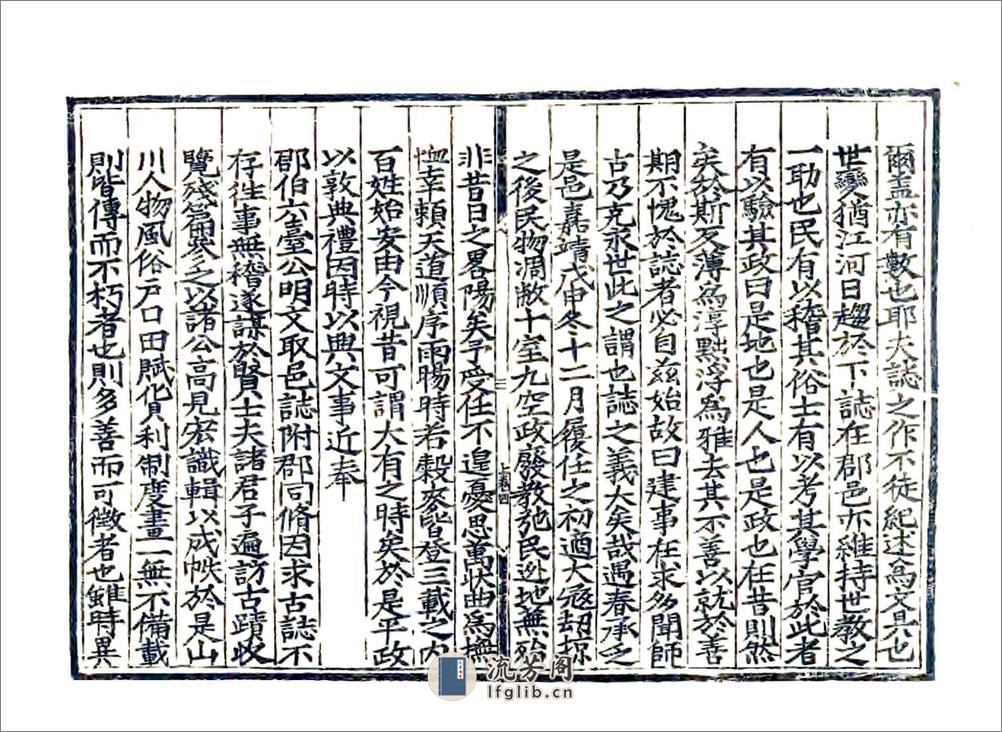 爾盖亦有數也耶夫誌之作不徒紀述爲文具也
世變猶江河日趨於下誌在郡邑亦維持世教之
一助也民有以稽其俗士有以考其學官於此者
有以驗其政曰是地也是人也是政也在昔則然
矣於斯反薄爲淳黜浮爲雅去其不善以就於善
期不愧於誌者必自兹始故曰建事在求多聞師
古乃克永世此之謂也誌之義大矣哉遇春承乏
是邑嘉靖戊申冬十二月履任之初適大寇刼掠
之後民物凋敝十室九空政廢教弛民逊地無殆
上卷四
非昔日之畧陽矣予受任不遑憂思萬狀曲爲撫
恤幸賴天道順序雨暘時若穀麥皆登三載之内
百姓始安由今視昔可謂大有之時矣於是平政
以敦典禮因時以興文事近奉
郡伯六臺公明文取邑誌附郡同脩因求古誌不
存徃事無稽遂謀於賢士夫諸君子遍訪古蹟收
覽殘篇參之以諸公高見宏識輯以成帙於是山
川人物風俗戸口田賦貨利制度畫一無不備載
則皆傳而不朽者也則多善而可徵者也雖時異
流芳阁
lfglib.cn